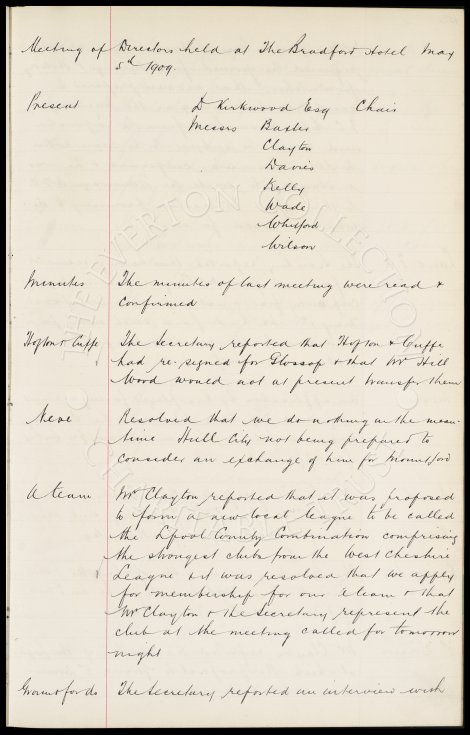 Meeting of Directors held at The Bradford Hotel May
5th 1909.
Present D Kirkwood Esq Chair
Messrs Baxter
Clayton
Davies
Kelly
Wade
Whitford
Wilson
Minutes The minutes of last meeting were read &
confirmed
Hofton & Cuffe The Secretary reported that Hofton & Cuffe
had re-signed for Glossop & that Mr Hill
Wood would not at present transfer them
Neve Resolved that we do nothing in the mean-
time Hull City not being prepared to
consider an exchange of him for Mountford
A team Mr Clayton reported that it was proposed
to form a new local league to be called
the Lpool County Combination comprising
the strongest clubs from the West Cheshire
League & it was resolved that we apply
for membership for our A team & that
Mr Clayton & the Secretary represent the
club at the meeting called for tomorrow
night
The Secretary reported an interview with
THE EVERTON COLLECTION